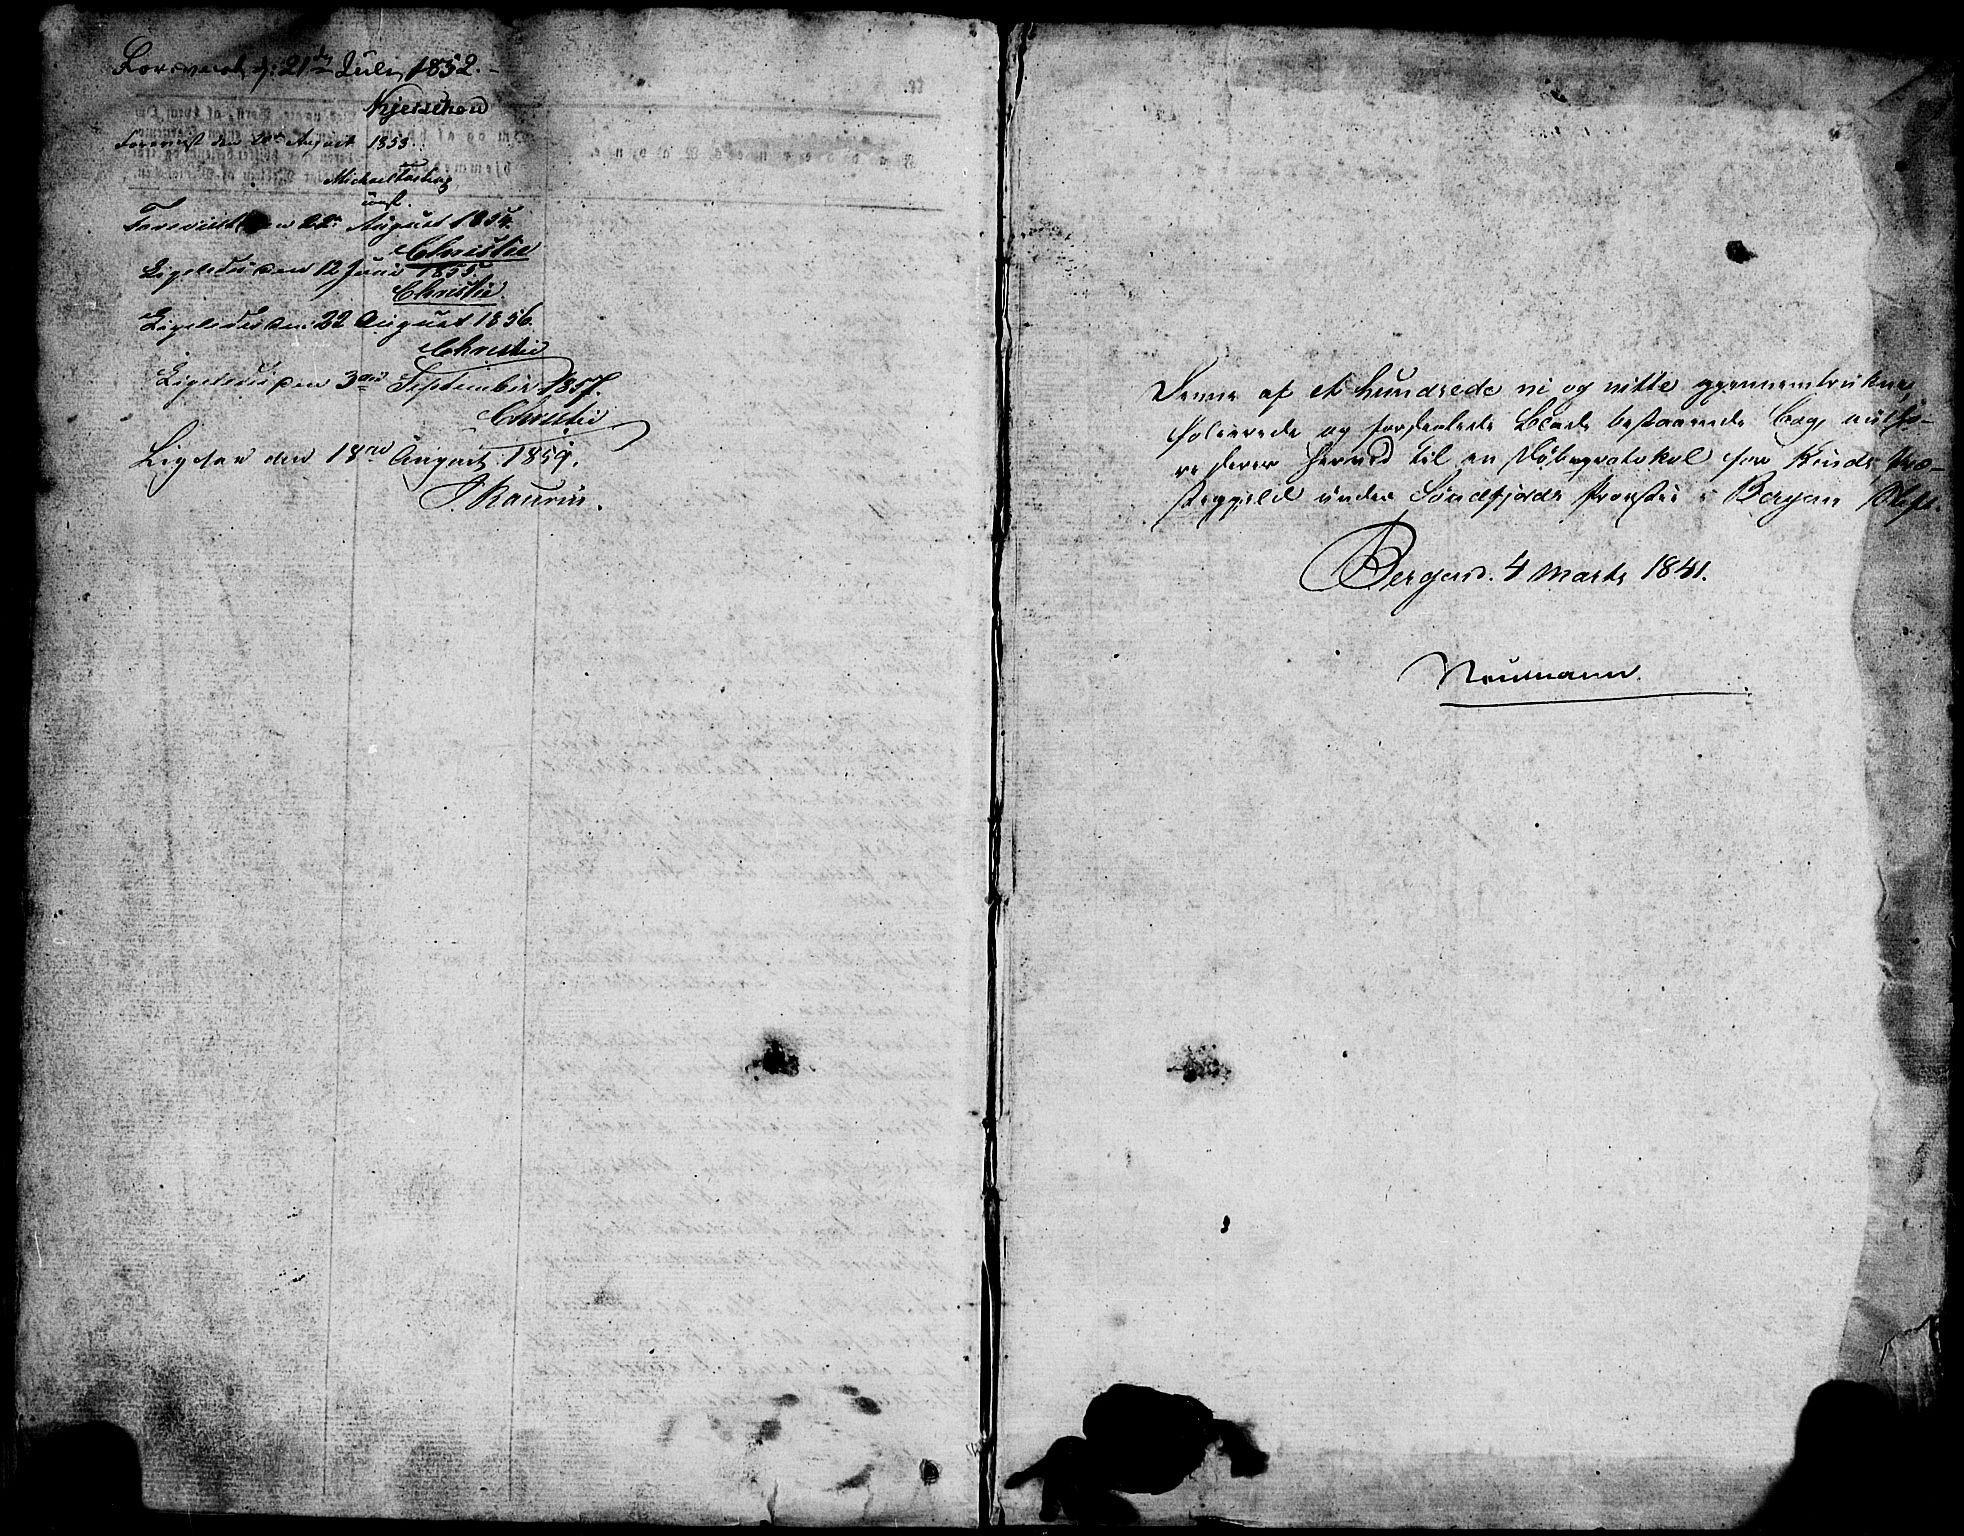 Foreviist d: 21de Juli 1852.
Kjerschow
Foreviist den August 1853.
Michael
const.
Foreviist den 22de August 1854.
Christie
Ligeledes den 12 Juni 1855.
Christie
Ligeledes den 22 August 1856.
Christie
Ligeledes den 3die September 1857.
Christie
Ligesaa den 18de August 1859.
J. Kaurin.
Denne af et hundrede ni og nitte gjennemtrukne,
folierede og forseglede Blade bestaaende Bog autho-
riseres herved til en Døbeprotokol for Kinds Præ-
stegjeld under Søndfjords Provstie i Bergens Stift.
Bergen d. 4 Marts 1841.
Neumann.